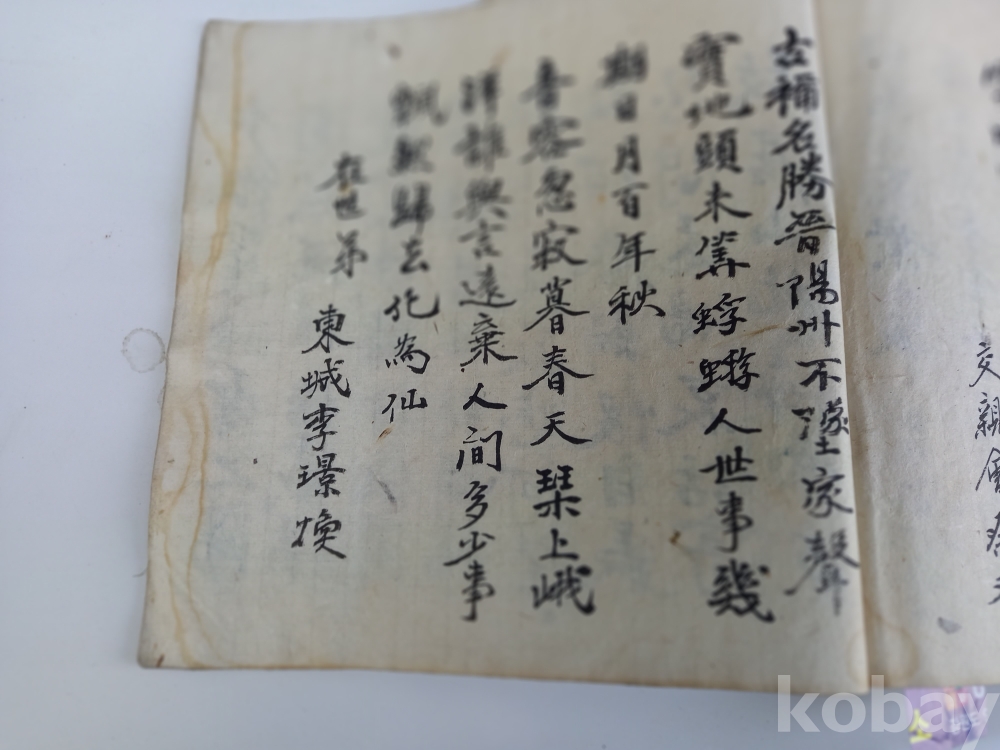 古稱名勝晉陽州不墜家聲
實地頭未筭蜉蝣人世事幾
期日月百年秋
音容忽寂暮春天琹上峨
洋誰與言遠棄人间多少事
飄然歸去化為仙
在世弟 東城李璟煥
交親會
kobay